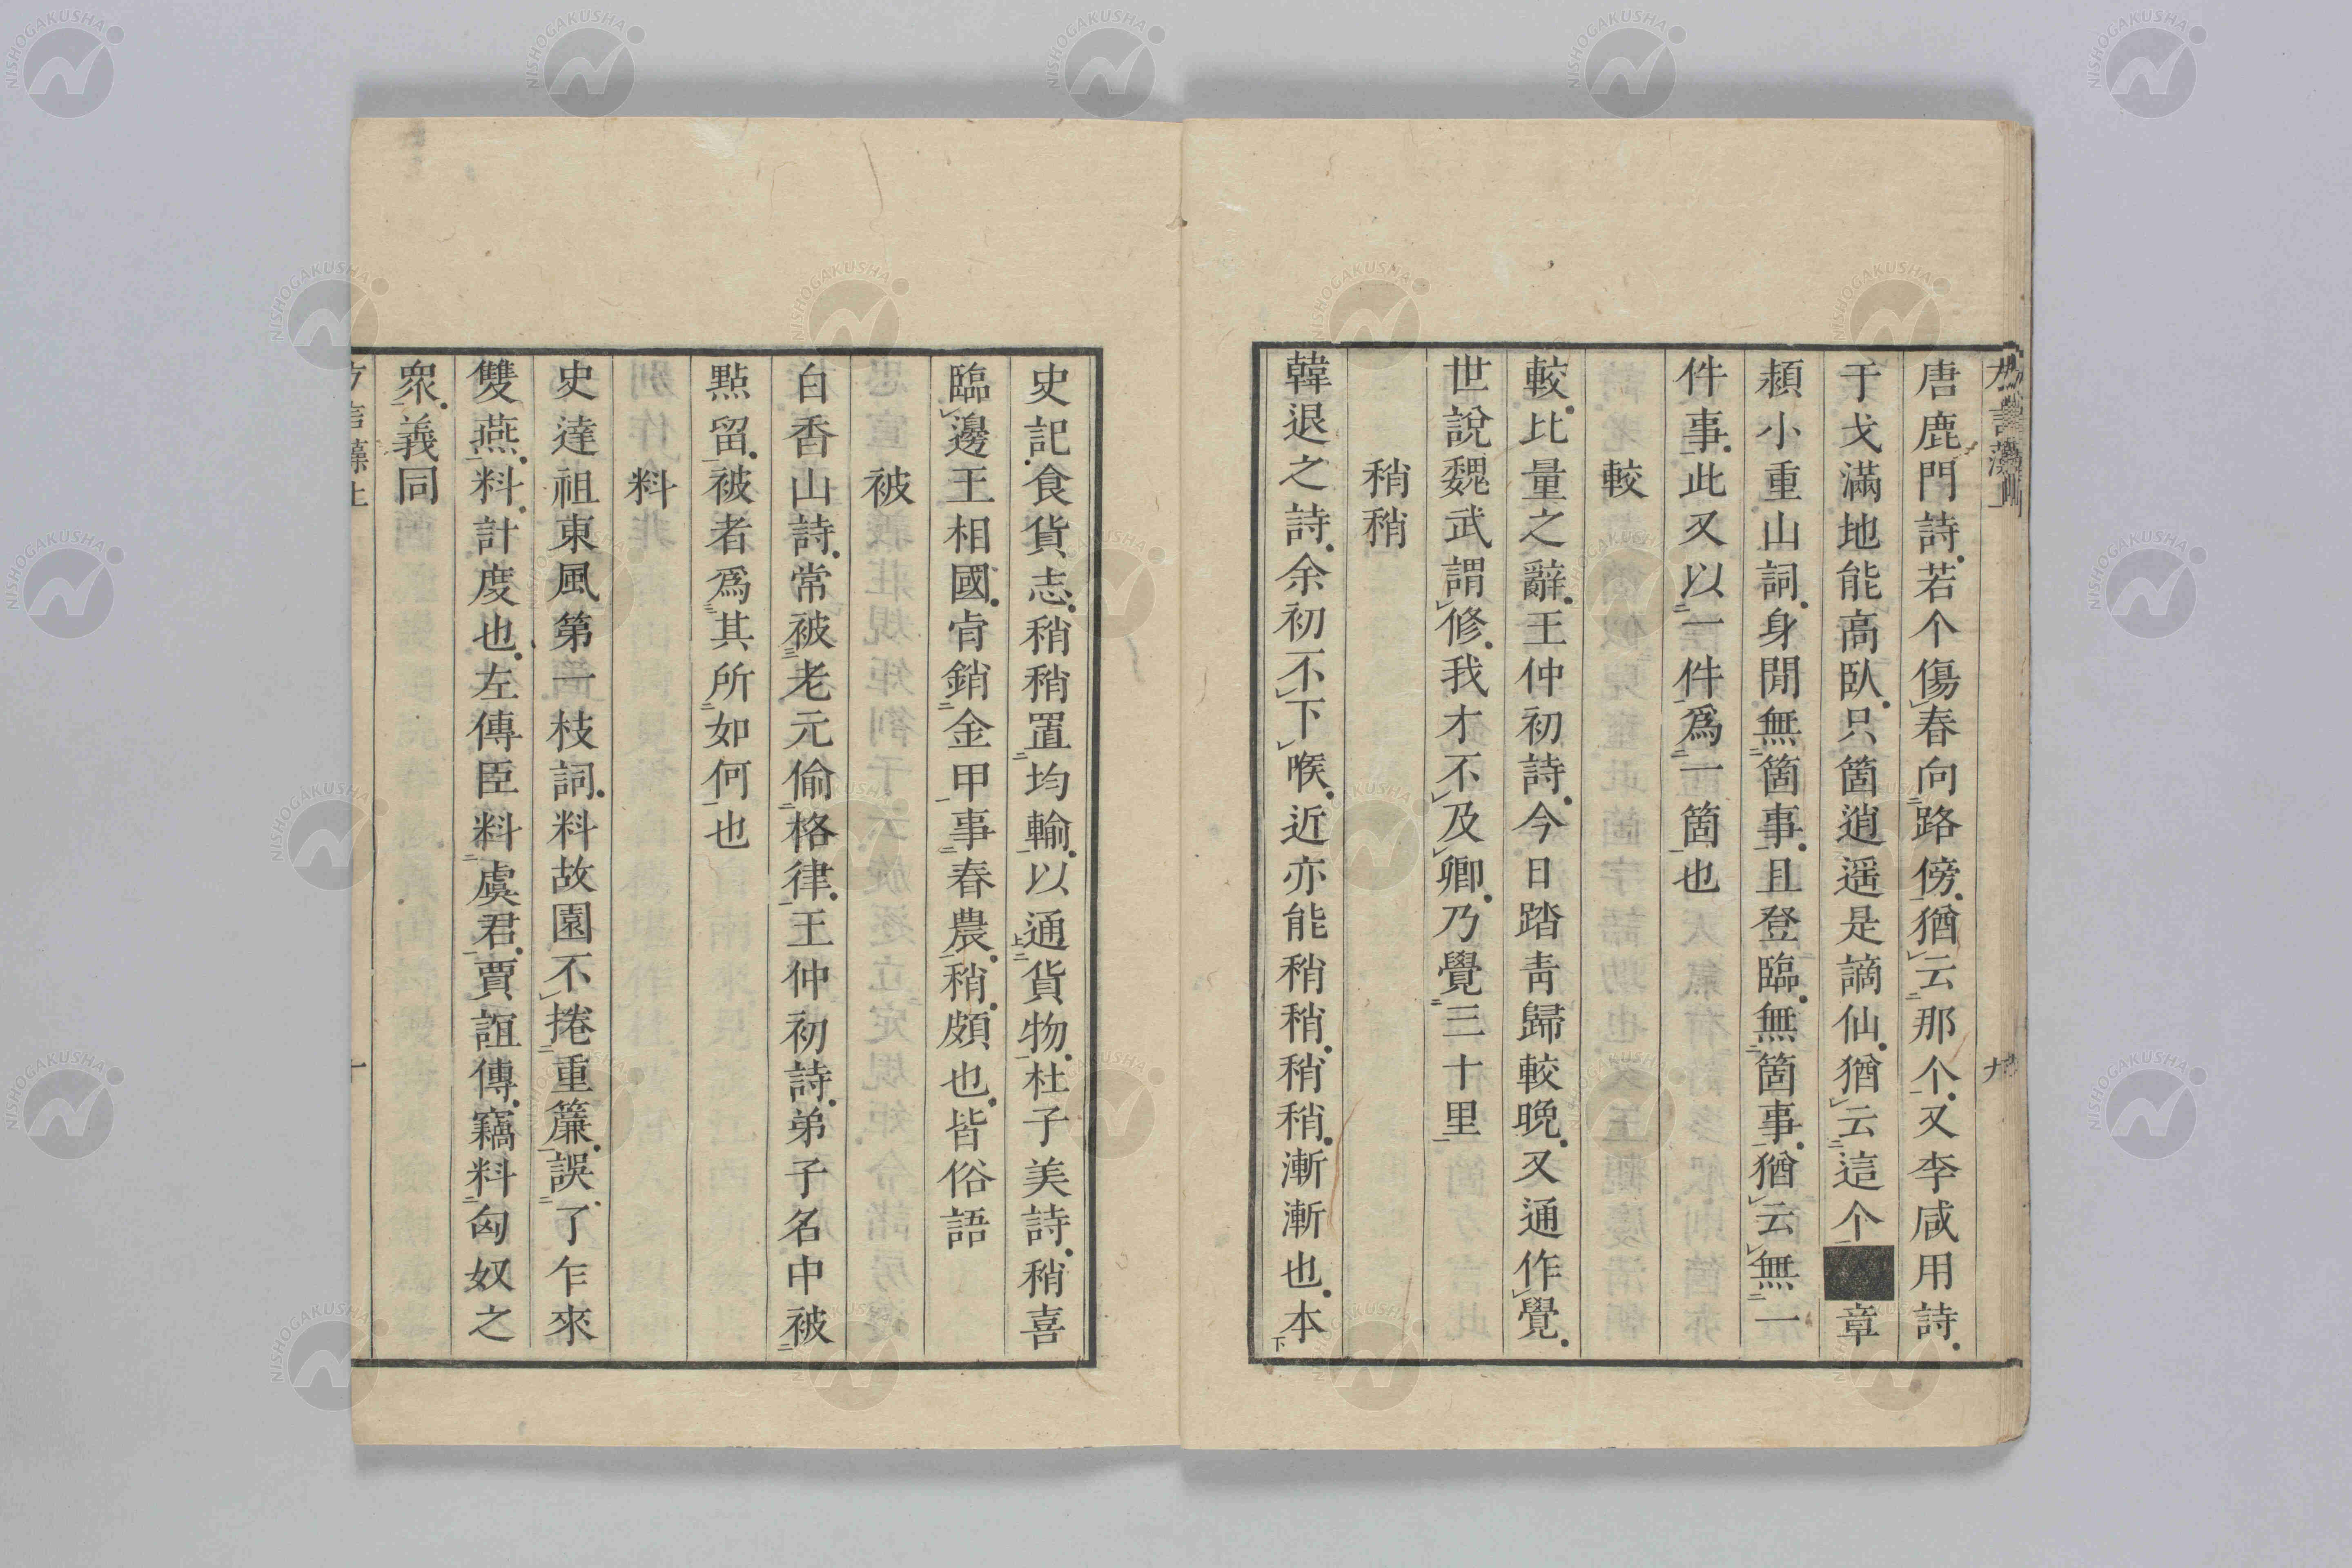 唐鹿門詩若个傷春向路傍猶云那个又李咸用詩
于戈滿地能高臥只箇逍遥是謫仙猶云這个
章
頮小重山詞身閒無箇事且登臨無箇事猶云無一
件事此又以一件爲一箇也
較
較比量之辭王仲初詩今日踏靑歸較晚又通作覺
世說魏武謂修我才不及卿乃覺三十里
稍稍
韓退之詩余初不下喉近亦能稍稍稍稍漸漸也本
史記食貨志稍稍置均輸以通貨物杜子美詩稍喜
臨邊王相國肯銷金甲事春農稍頗也皆俗語
被
白香山詩常被老元偷格律王仲初詩弟子名中被
點留被者爲其所如何也
料
史達祖東風第一枝詞料故園不捲重簾誤了乍來
雙燕料計度也左傳臣料虞君賈誼傳竊料匈奴之
眾義同
方言藻上
十
NISHOGAKUSHA